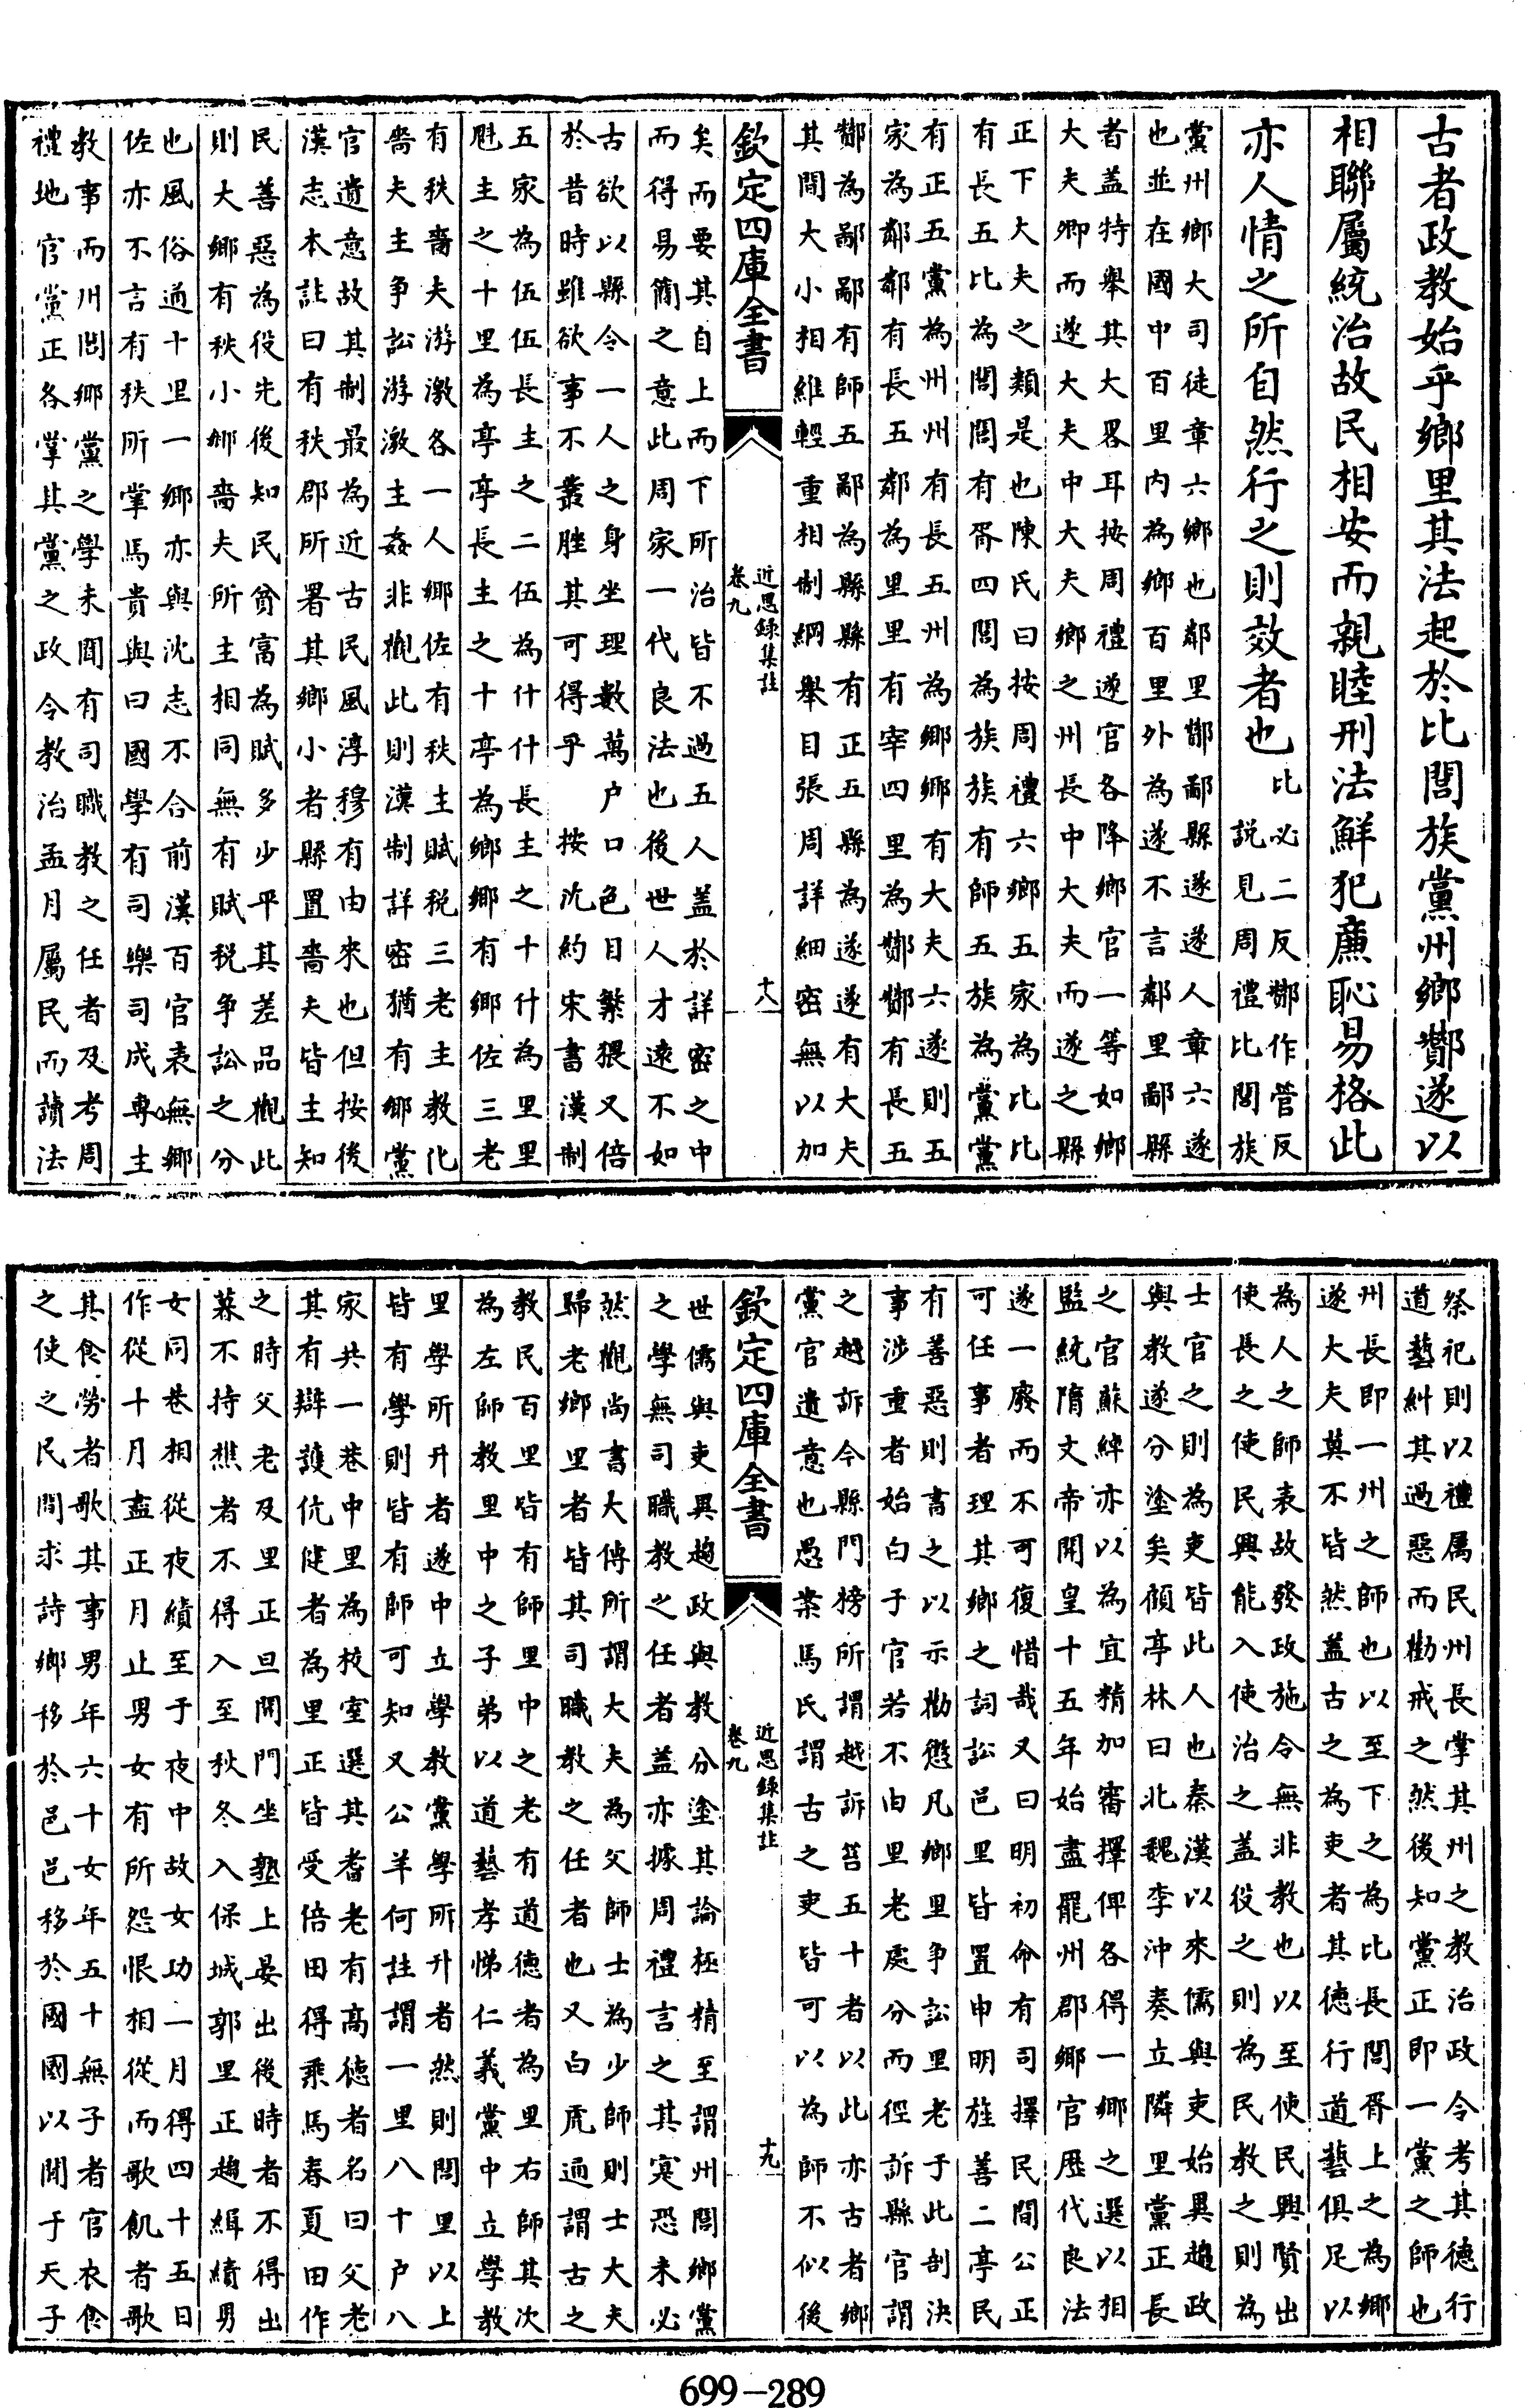 古者政教始乎鄉里其法起於比閭族黨州鄉酇遂以
相聯屬統治故民相安而親睦刑法鮮犯廉恥易格此
亦人情之所自然行之則效者也
比必二反酇作管反
説見周禮比閭族
黨州鄉大司徒章六鄉也鄰里酇鄙縣遂遂人章六遂
也並在國中百里内為鄉百里外為遂不言鄰里鄙縣
者盖特舉其大畧耳按周禮遂官各降鄉官一等如鄉
大夫卿而遂大夫中大夫鄉之州長中大夫而遂之縣
正下大夫之類是也陳氏曰按周禮六鄉五家為比比
有長五比為閭閭有胥四閭為族族有師五族為黨黨
有正五黨為州州有長五州為鄉鄉有大夫六遂則五
家為鄰鄰有長五鄰為里里有宰四里為酇酇有長五
酇為鄙鄙有師五鄙為縣縣有正五縣為遂遂有大夫
其間大小相維輕重相制綱舉目張周詳細密無以加
欽定四庫全書
近思録集註
卷九
十八
矣而要其自上而下所治皆不過五人盖於詳密之中
而得易簡之意此周家一代良法也後世人才遠不如
古欲以縣令一人之身坐理數萬户口色目繁猥又倍
於昔時雖欲事不叢脞其可得乎 按沈約宋書漢制
五家為伍伍長主之二伍為什什長主之十什為里里
魁主之十里為亭亭長主之十亭為鄉鄉有鄉佐三老
有秩嗇夫游激各一人鄉佐有秩主賦税三老主教化
嗇夫主争訟游激主姦非觀此則漢制詳密猶有鄉黨
官遺意故其制最為近古民風淳穆有由來也但按後
漢志本註曰有秩郡所署其鄉小者縣置嗇夫皆主知
民善惡為役先後知民貧富為賦多少平其差品觀此
則大鄉有秩小鄉嗇夫所主相同無有賦税争訟之分
也風俗通十里一鄉亦與沈志不合前漢百官表無鄉
佐亦不言有秩所掌馬貴與曰國學有司樂司成專主
教事而州閭鄉黨之學未聞有司職教之任者及考周
禮地官黨正各掌其黨之政令教治孟月屬民而讀法
祭祀則以禮属民州長掌其州之教治政令考其德行
道藝糾其過惡而勸戒之然後知黨正即一黨之師也
州長即一州之師也以至下之為比長閭胥上之為鄉
遂大夫莫不皆然盖古之為吏者其德行道藝俱足以
為人之師表故發政施令無非教也以至使民興賢出
使長之使民興能入使治之盖役之則為民教之則為
士官之則為吏皆此人也秦漢以來儒與吏始異趨政
與教遂分塗矣顧亭林曰北魏李沖奏立隣里黨正長
之官蘇綽亦以為宜精加審擇俾各得一鄉之選以相
監統隋文帝開皇十五年始盡罷州郡鄉官歷代良法
遂一廢而不可復惜哉又曰明初命有司擇民間公正
可任事者理其鄉之詞訟邑里皆置申明旌善二亭民
有善惡則書之以示勸懲凡鄉里争訟里老于此剖決
事涉重者始白于官若不由里老處分而徑訴縣官謂
之越訴今縣門榜所謂越訴笞五十者以此亦古者鄉
黨官遺意也愚案馬氏謂古之吏皆可以為師不似後
欽定四庫全書
近思録集註
卷九
十九
世儒與吏異趨政與教分塗其論極精至謂州閭鄉黨
之學無司職教之任者盖亦據周禮言之其寔恐未必
然觀尚書大傳所謂大夫為父師士為少師則士大夫
歸老鄉里者皆其司職教之任者也又白虎通謂古之
教民百里皆有師里中之老有道德者為里右師其次
為左師教里中之子弟以道藝孝悌仁義黨中立學教
里學所升者遂中立學教黨學所升者然則閭里以上
皆有學則皆有師可知又公羊何註謂一里八十户八
家共一巷中里為校室選其耆老有高德者名曰父老
其有辯護伉健者為里正皆受倍田得乘馬春夏田作
之時父老及里正旦開門坐塾上晏出後時者不得出
暮不持樵者不得入至秋冬入保城郭里正趨緝績男
女同巷相從夜績至于夜中故女功一月得四十五日
作從十月盡正月止男女有所怨恨相從而歌飢者歌
其食勞者歌其事男年六十女年五十無子者官衣食
之使之民間求詩鄉移於邑邑移於國國以聞于天子
699-289